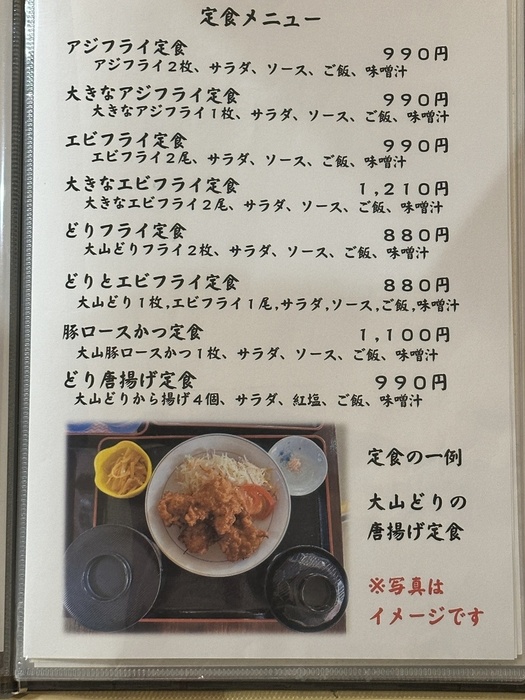 定食メニュー
アジフライ定食 990円
アジフライ2枚、サラダ、ソース、ご飯、味噌汁
大きなアジフライ定食 990円
大きなアジフライ1枚、サラダ、ソース、ご飯、味噌汁
エビフライ定食 990円
エビフライ2尾、サラダ、ソース、ご飯、味噌汁
大きなエビフライ定食 1,210円
大きなエビフライ2尾、サラダ、ソース、ご飯、味噌汁
どりフライ定食 880円
大山どりフライ2枚、サラダ、ソース、ご飯、味噌汁
どりとエビフライ定食 880円
大山どり1枚,エビフライ1尾,サラダ,ソース,ご飯,味噌汁
豚ロースかつ定食 1,100円
大山豚ロースかつ1枚、サラダ、ソース、ご飯、味噌汁
どり唐揚げ定食 990円
大山どりから揚げ4個、サラダ、紅塩、ご飯、味噌汁
定食の一例
大山どりの
唐揚げ定食
※写真は
イメージです